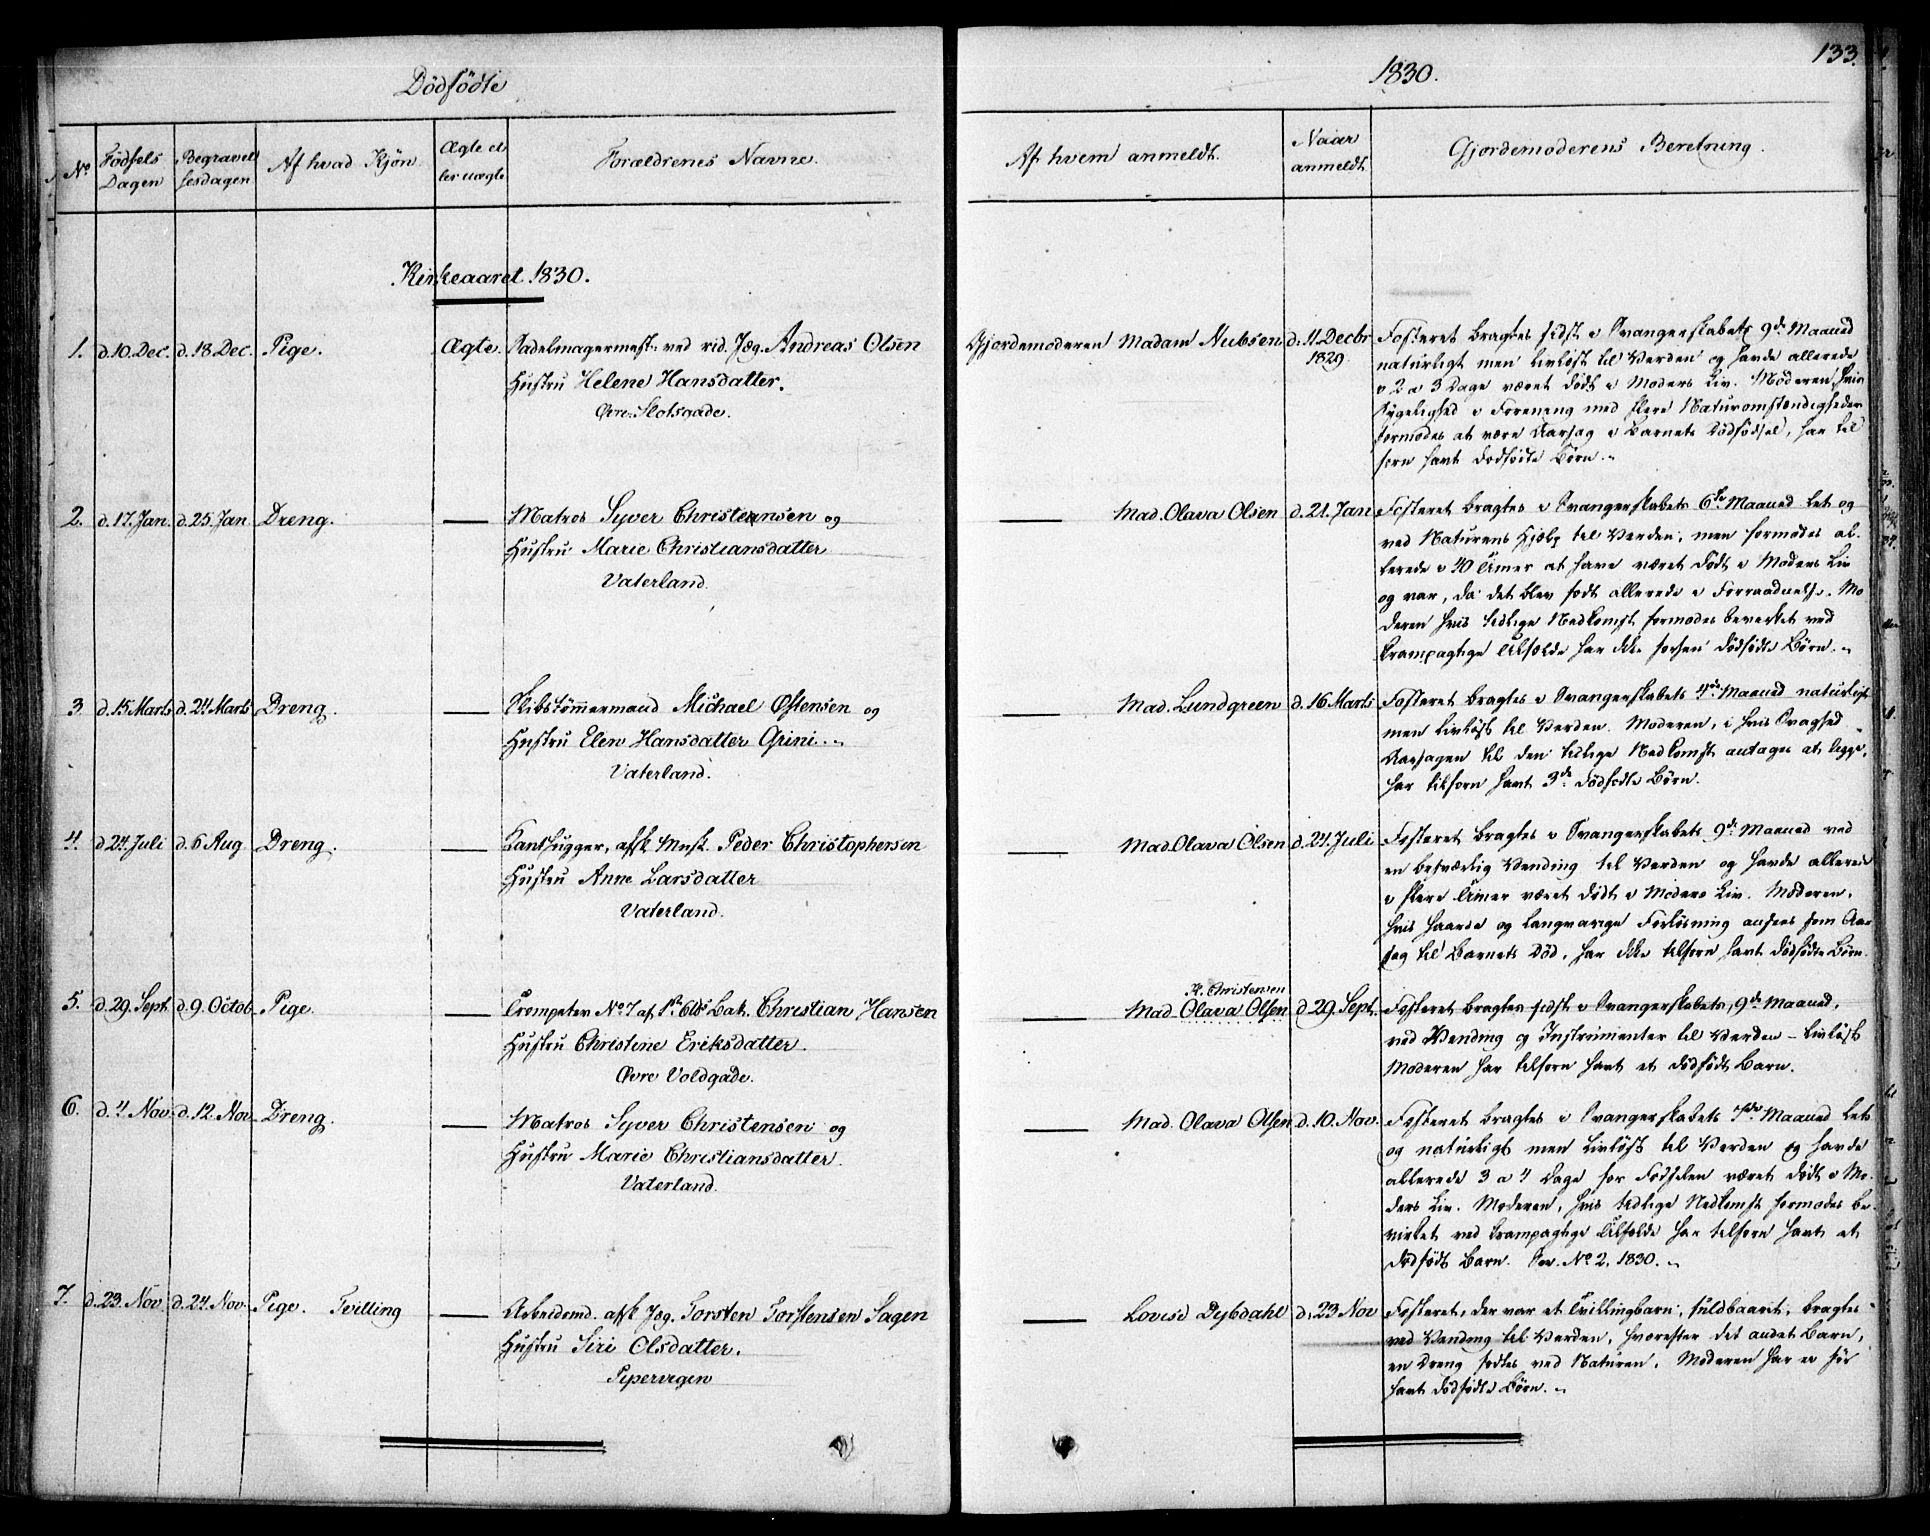 133.
Dödfödte
1830.
No
Födsels Dagen
Begravelsesdagen
Af hvad Kjön.
Ægte eller uægte
Forældrenes Navne.
Af hvem anmeldt.
Naar anmeldt
Gjordemoderens Beretning.
Kirkeaaret 1830.
1. d.10.Dec. d.18 Dec. Pige. Ægte. Sadelmagermest: ved rid. Jæg. Andreas Olsen
Hustru Helene Hansdatter.
Øvre Slotsgade.
Gjordemoderen Madam Nubsen d. 11. Decbr 1829.
Fosteret bragtes sidst i Svangerskabets 9de Maaned
naturligt men livløst til Verden og havde allerede
i 2 a 3 Dage været dödt i Moders Liv. Moderen, hvis
Sygelighed i Forening med flere Naturomstændigheder
formodes at være Aarsag i Barnets Dödfödsel, har til
forn havt dödfödte Börn.
2. d.17. Jan. d.25. Jan Dreng. — Matros Syver Christensen og
Hustru Marie Christiansdatter
Vaterland.
— Mad. Olava Olsen d. 21. Jan
Fosteret bragtes i Svangerskabets 6te Maaned let og
ved Naturens Hjælp til Verden, men formodes al-
lerede i 40 Timer at have været dödt i Moders Liv
og var, da det blev födt allerede i Forraadnelse. Mo
deren hvis tidlige Nedkomst formodes bevirket ved
krampagtige Tilfælde har ikke forhen dödfödte Börn.
3 d.15 Marts d.24 Marts Dreng. — Skibstömmermand Michael Østensen og
Hustru Elen Hansdatter Grini.
Vaterland.
— Mad. Lundgreen d. 16 Marts
Fosteret bragtes i Svangerskabets 4de Maaned naturligt
men livløst til Verden. Moderen, i hvis Svaghed
Aarsagen til den tidlige Nedkomst antages at ligge,
har tilforn havt 3de dödfödte Börn.
4. d 24 Juli d. 6 Aug Dreng. — afsk Musk. Peder Christophersen
Hustru Anne Larsdatter
Vaterland.
— Mad. Olava Olsen d. 24. Juli
Fosteret bragtes i Svangerskabets 9de Maaned ved
en besværlig Vending til Verden og havde allerede
i flere Timer været dödt i Moders Liv. Moderen,
hvis haarde og langvarige Forløsning ansees som Aar
sag til Barnets Död, har ikke tilforn havt dödfödte Börn.
5. d.29. Sept. d. 9. Octob. Pige. — Trompeter No 7 af Christian Hansen
Hustru Christine Eriksdatter.
Øvre Voldgade.
K. Christensen
— Mad. Olava Olsen d. 29. Sept.
Fosteret bragtes sidst i Svangerskabets 9de Maaned,
ved Vending og Instrumenter til Verden – livløst
Moderen har tilforn havt et dödfödt Barn.
6. d. 4 Nov. d. 12. Nov. Dreng. — Matros Syver Christensen og
Hustru Marie Christiansdatter.
Vaterland.
— Mad. Olava Olsen d. 10. Nov.
Fosteret bragtes i Svangerskabets Maaned let
og naturligt men livløst til Verden og havde
allerede 3 a 4 Dage för Födselen været dödt i Mo-
ders Liv. Moderen, hvis tidlige Nedkomst formodes be-
virket ved krampagtige Tilfælde har tilforn havt et
dödfödt Barn. No 2, 1830.
7. d. 23. Nov d. 24. Nov. Pige. Tvilling — Arbeidsmd. afsk Jæg. Torsten Torstensen Sagen
Hustru Siri Olsdatter.
Pipervigen
— Lovise Dybdahl d. 23 Nov
Fosteret, der var et Tvillingbarn, fuldbaaret, bragtes
ved Vending til Verden, hvorefter det andet Barn,
en Dreng födtes ved Naturen. Moderen har ei för
havt dödfödte Börn.